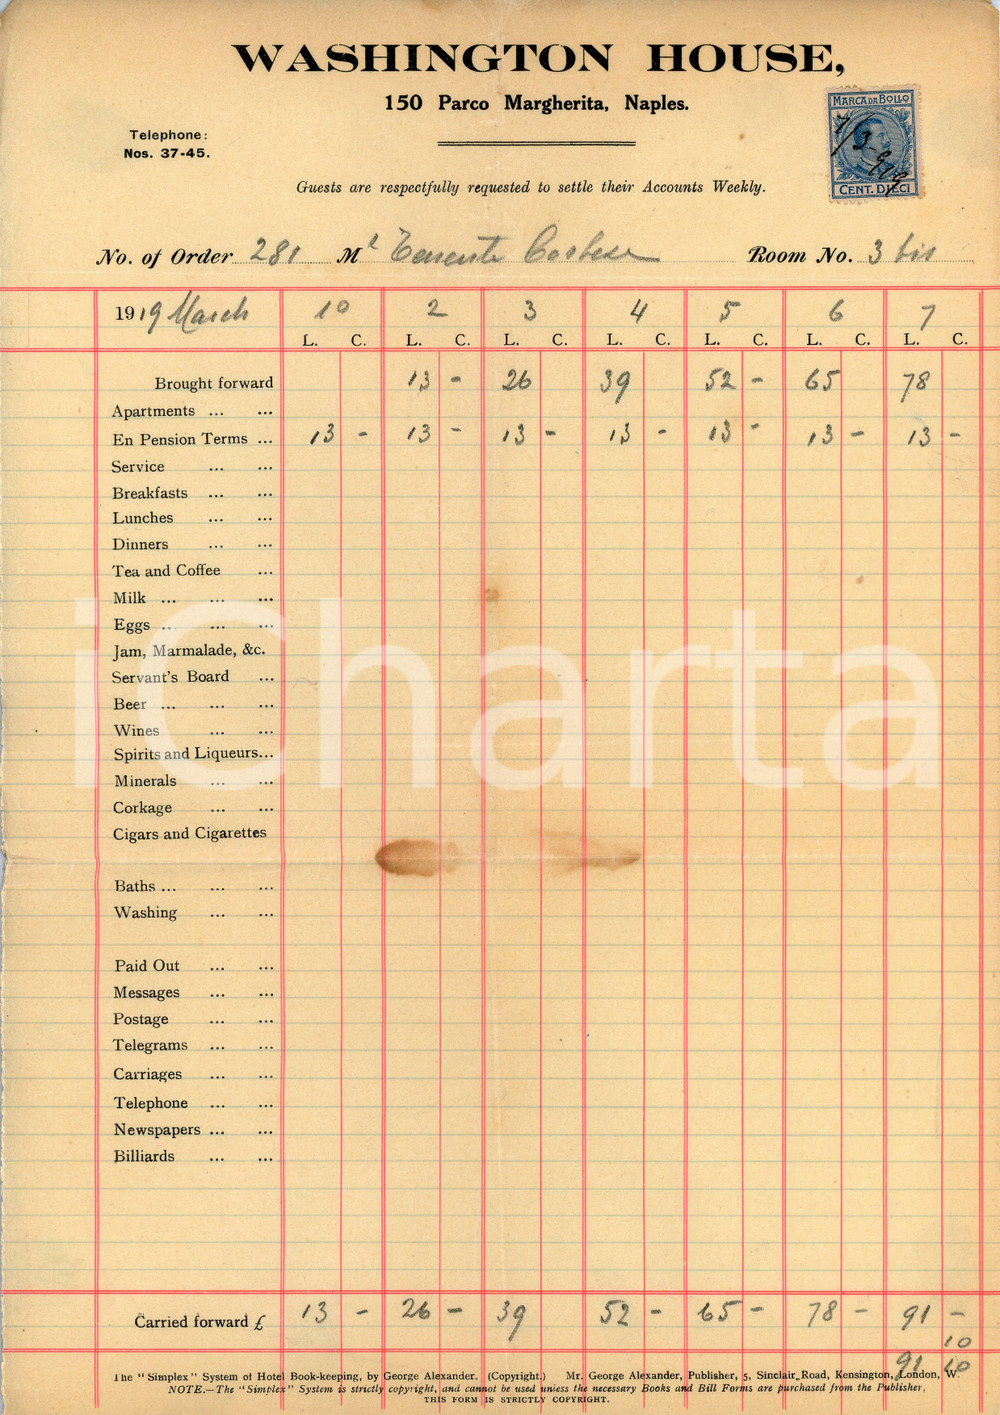 WASHINGTON HOUSE,
150 Parco Margherita, Naples.
Telephone:
Nos. 37-45.
MARCA DA BOLLO
7/3-919
CENT. DIECI
Guests are respectfully requested to settle their Accounts Weekly.
No. of Order 281 M Tenente Room No. 3 bis
1919 March 1º 2 3 4 5 6 7
L. C. L. C. L. C. L. C. L. C. L. C. L. C.
Brought forward 13 - 26 39 52 - 65 78
Apartments ... ...
En Pension Terms ... 13 - 13 - 13 - 13 - 13 - 13 - 13 -
Service ... ...
Breakfasts ... ...
Lunches ... ...
Dinners ... ...
Tea and Coffee ...
Milk ... ... ...
Eggs ... ... ...
Jam, Marmalade, &c.
Servant's Board ...
Beer ... ... ...
Wines ... ...
Spirits and Liqueurs...
Minerals ... ...
Corkage ... ...
Cigars and Cigarettes
Baths ... ... ...
Washing ... ...
Paid Out ... ...
Messages ... ...
Postage ... ...
Telegrams ... ...
Carriages ... ...
Telephone ... ...
Newspapers ... ...
Billiards ... ...
Carried forward £ 13 - 26 - 39 52 - 65 - 78 - 91 -
10
91 10
The "Simplex" System of Hotel Book-keeping, by George Alexander. (Copyright.) Mr. George Alexander, Publisher, 5, Sinclair Road, Kensington, London, W.
NOTE.—The "Simplex" System is strictly copyright, and cannot be used unless the necessary Books and Bill Forms are purchased from the Publisher.
THIS FORM IS STRICTLY COPYRIGHT.
iCharta